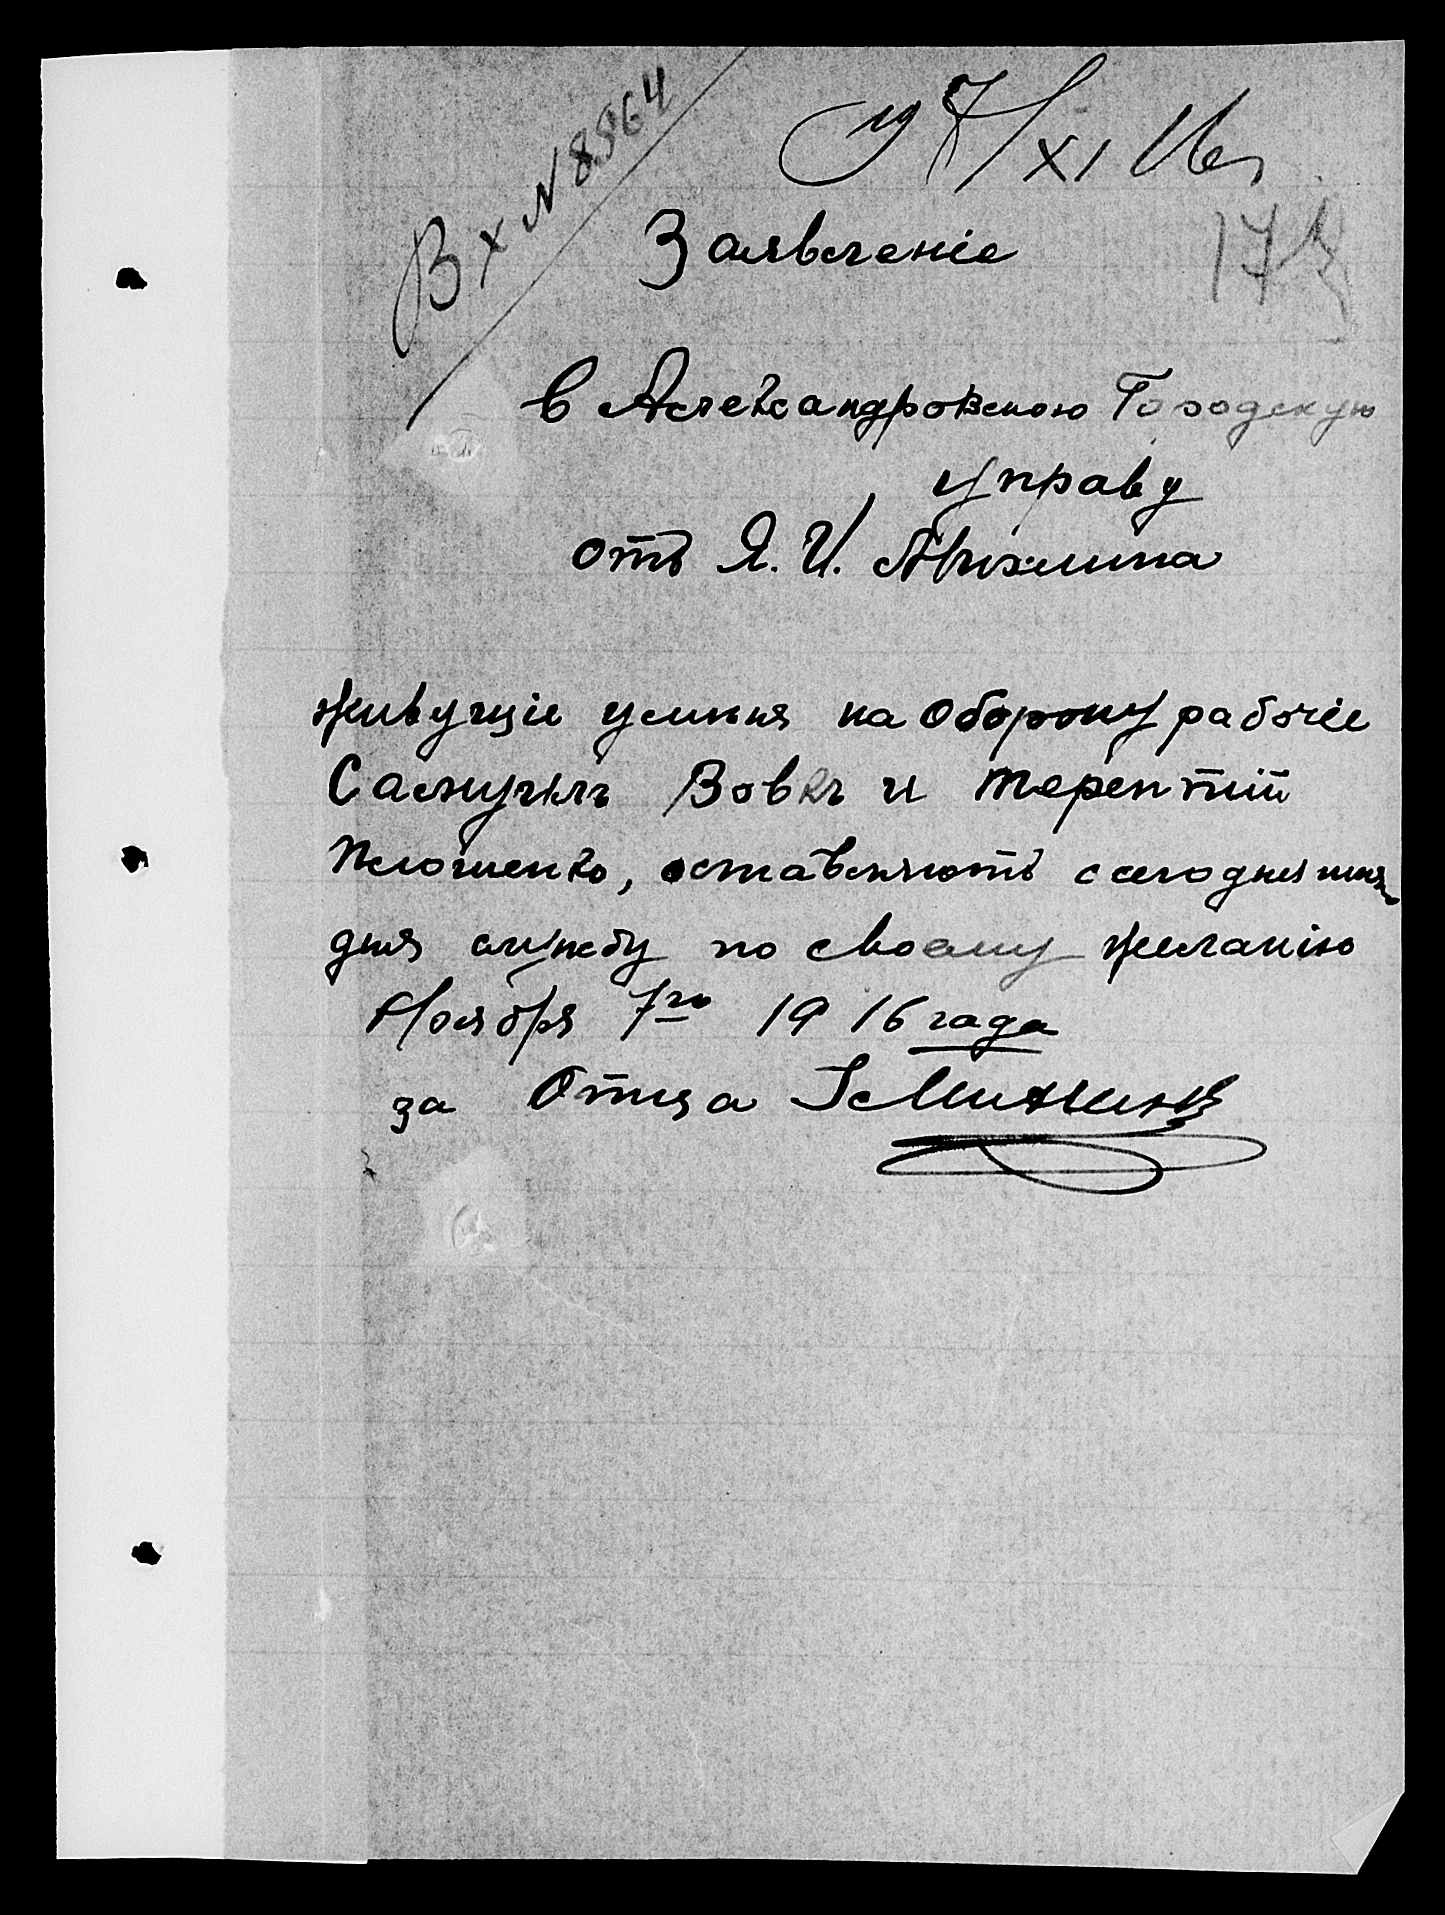 Вх N 8964
7/XI 16
17
Заявленіе
в Александровскою Городскую
управу
отъ Я. И. Михлина
живущіе уменя на оборону рабочіе
Самуилъ Вовкъ и терентій
оставляютъ ссегодняшня
дня службу по своему желанію
Ноября 7го 1916 года
за Отца